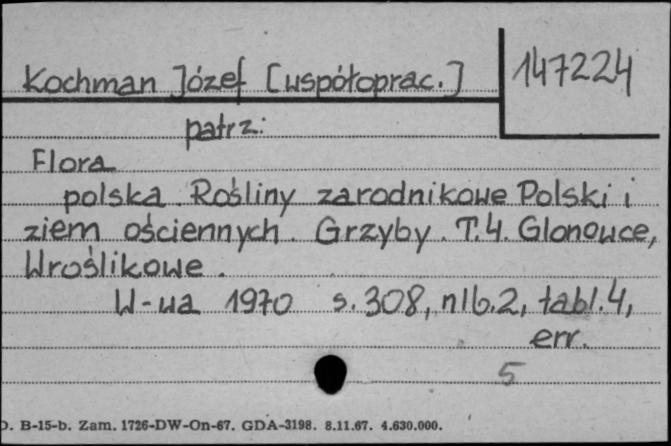 Kochman Józef [współoprac.]
147224
patrz:
Flora
polska. Rośliny zarodnikowe Polski i
ziem ościennych. Grzyby. T.4. Glonowce,
Wroślikowe.
W-wa 1970 s. 308, nlb.2, tabl.4,
err.
5
D. B-15-b. Zam. 1726-DW-On-67. GDA-3198. 8.11.67. 4.630.000.